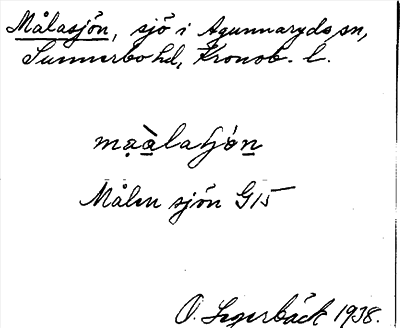 Målasjön, sjö i Agunnaryds sn,
Sunnerbo hd, Kronob. l.
mạàlaʃjón
Målen sjön G15
O. Segerbäck 1938.